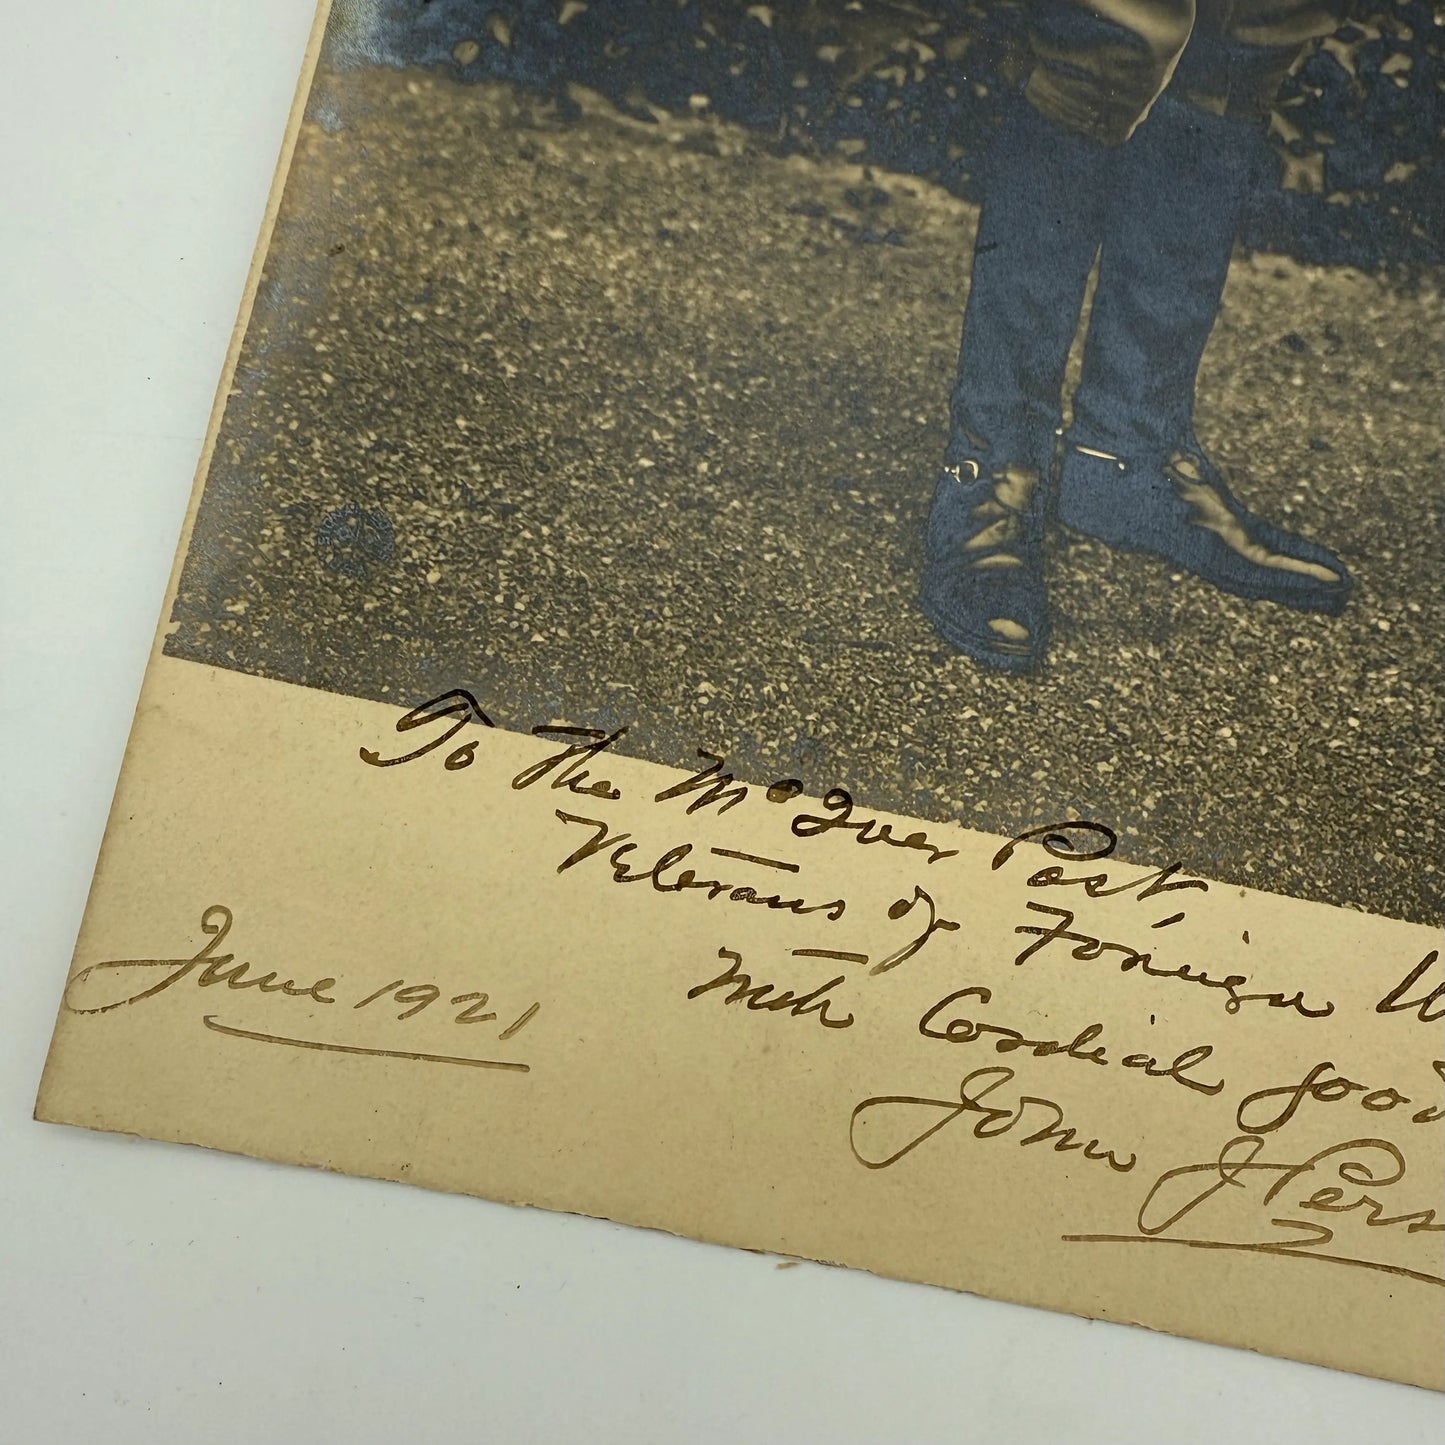 To the McIver Post,
Veterans of Foreign W
With Cordial good
John J Pers
June 1921